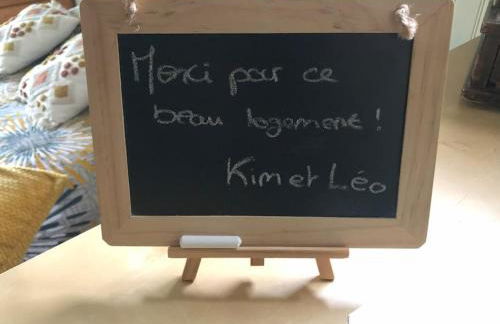 Merci pour ce
beau logement !
Kim et Léo